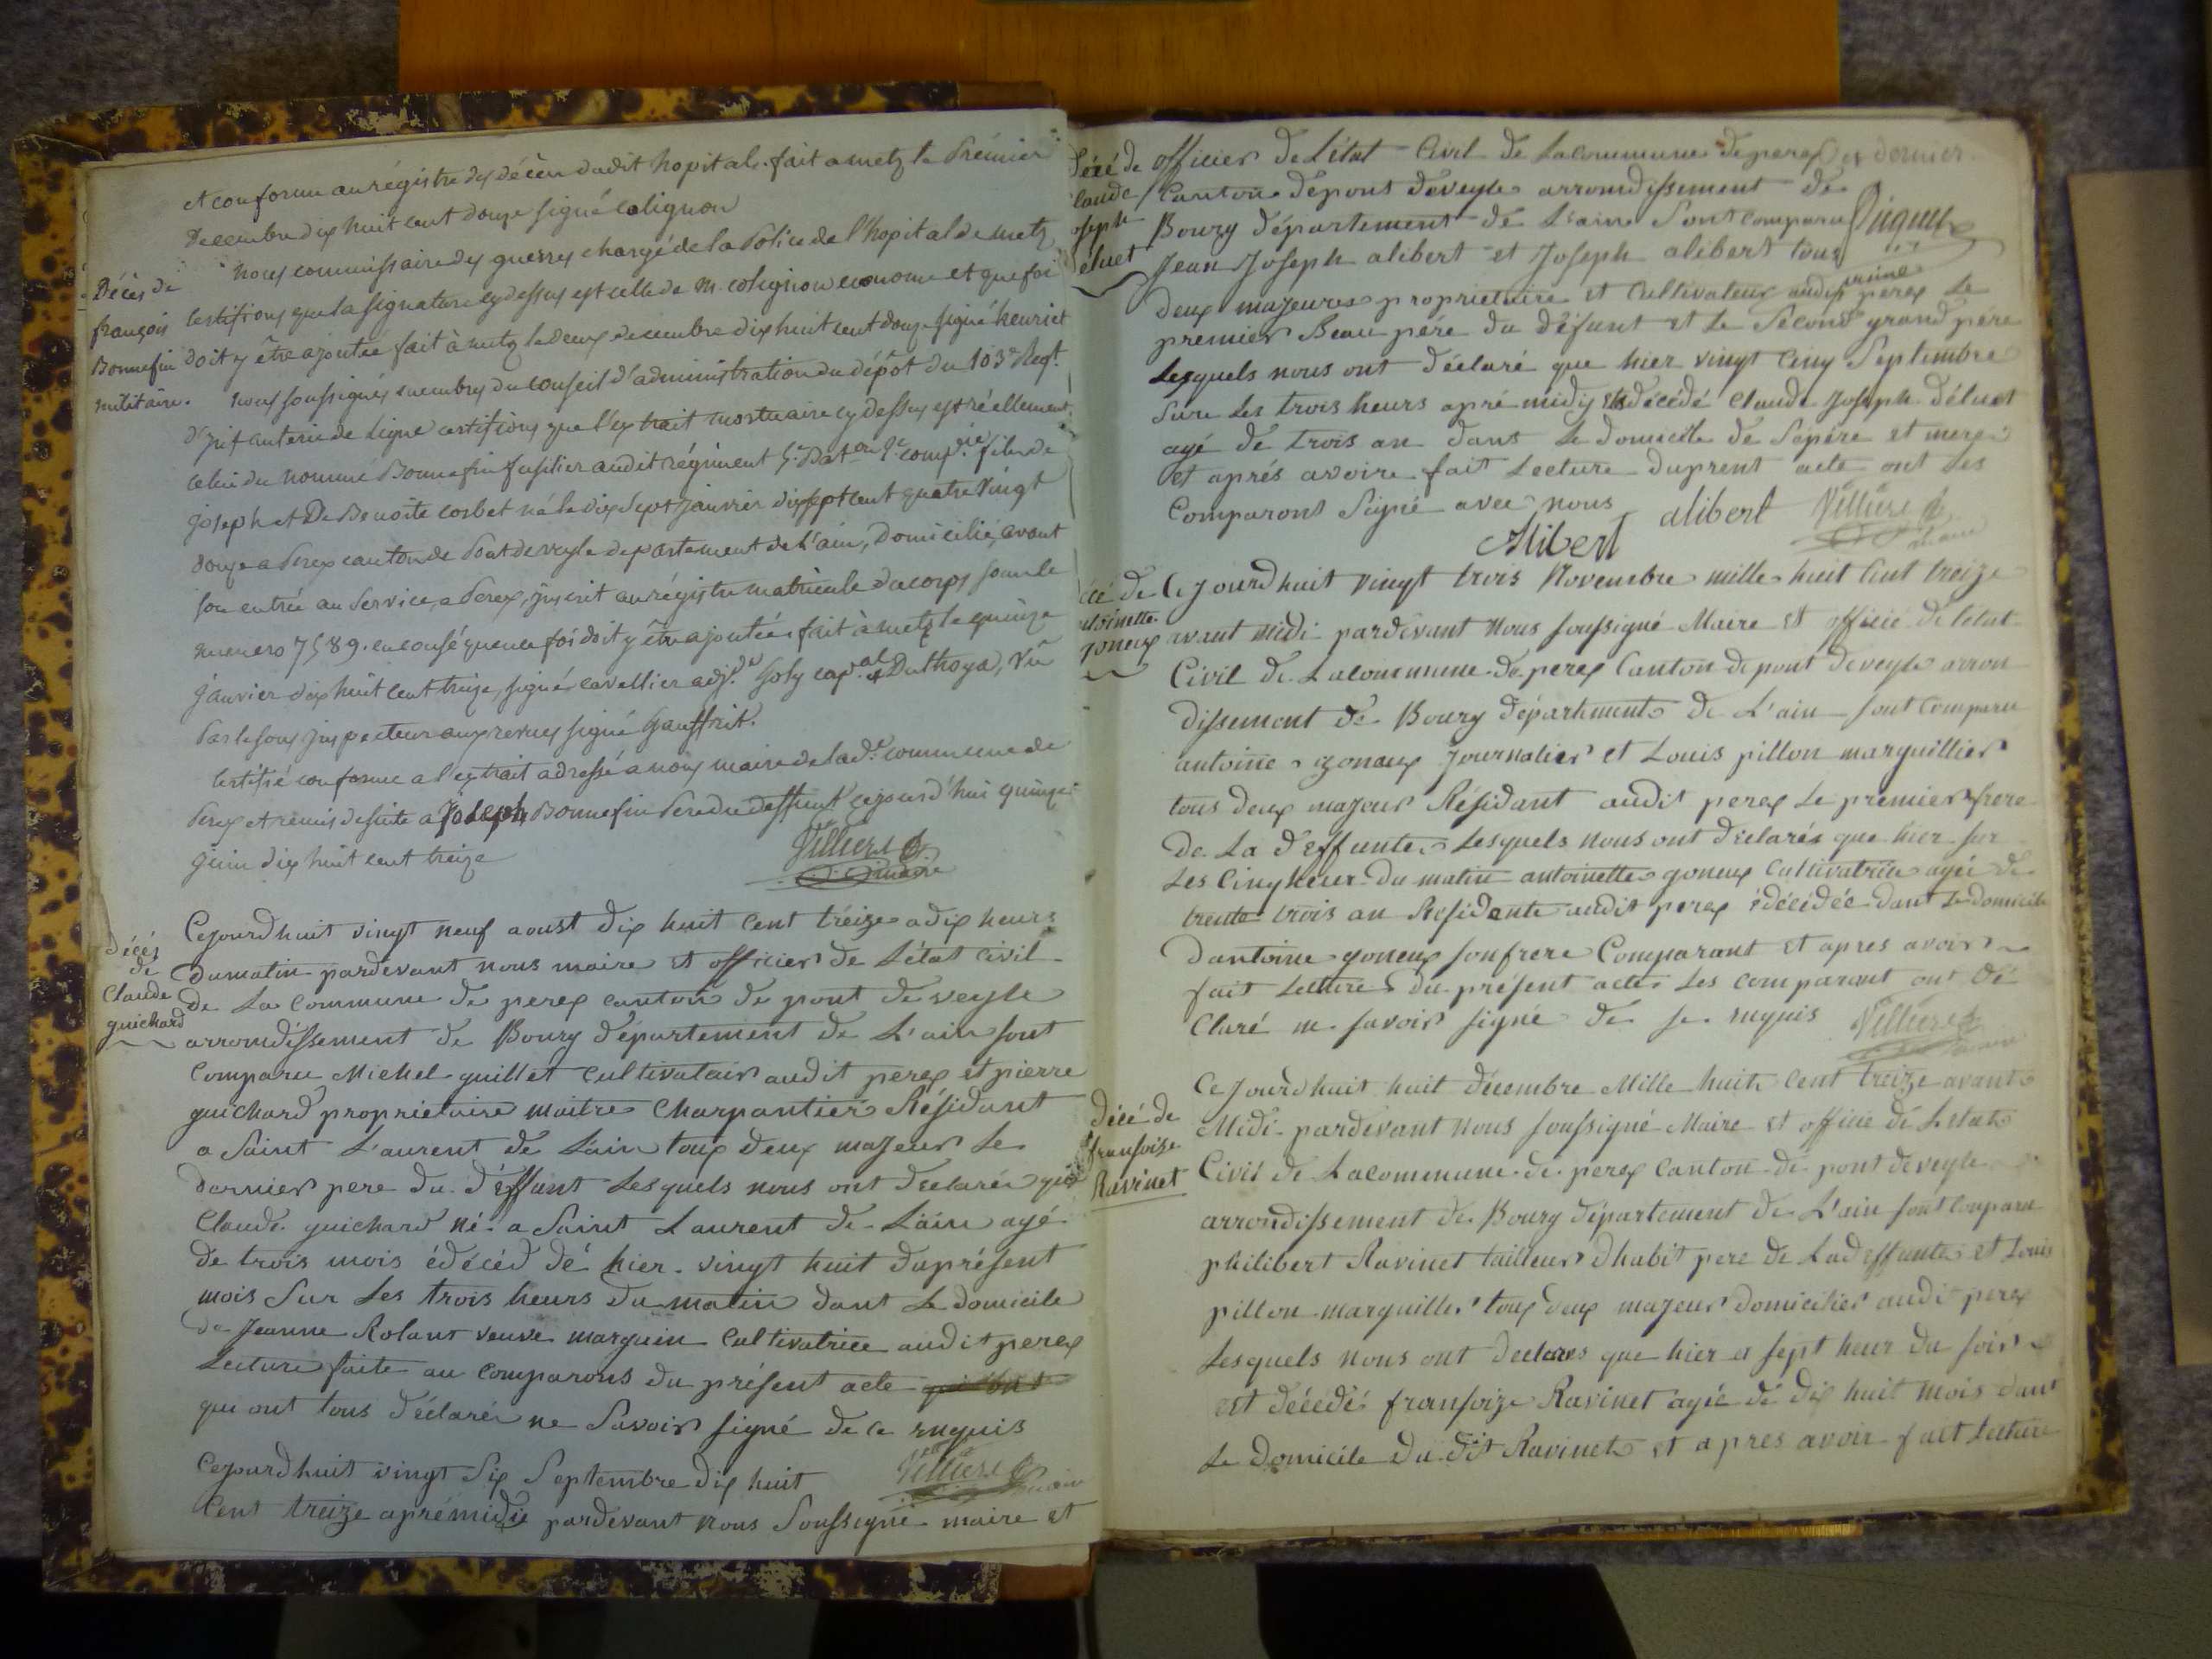 et conforme au régistre des décès dudit hopital. fait a metz le Prémier
Decembre dix huit cent douze signé colignon
Décès de
françois
Bonnefin
militaire.
nous commissaire des guerres chargé de la Police de l'hopital de metz
certifions que la signature cy dessus est celle de M. colignon econome et que foi
doit y être ajoutée fait à metz le deux decembre dix huit cent douze signé henriet
nous soussignés membres du conseil d'administration du dépôt du 103e Regt.
d'infanterie de Ligne certifions que l'extrait mortuaire cy dessus est réellement
celui du nommé Bonnefin fusilier audit régiment 5e Baton 2e compnie fils de
joseph et De Benoite corbet né le dix sept janvier dix sept cent quatre vingt
douze a Perex canton de Pont de veyle departement de L'ain, Domicilié, avant
son entrée au Service, a Perex, inscrit au régistre matricule du corps sous le
numero 7589. en conséquence foi doit y être ajoutée. fait à metz le quinze
janvier dix huit cent treize, signé cavellier adj. joly cap.al Duthoya, Vu
Par le sous inspecteur aux revues signé Gauffrit.
Certifié conforme a l'extrait adressé a nous maire de lade commune de
Perex et remis de suite a Joseph Bonnefin Pere du deffunt cejourd'hui quinze
juin dix huit cent treize
Villiere
maire
Décés
de
Claude
guichard
Cejourdhuit vingt neuf aoust dix huit cent tréize a dix heurs
du matin pardevant nous maire et officier de L'état civil
de La commune de perex canton de pont de veyle
arromdissement de Bourg département de L'ain sont
Comparu Michel guillet Cultivatair audit perex et pierre
guichard proprietaire maitre Charpantier Résidant
a Saint L'aurent de Lain tous deux majeur Le
dernier pere du d'éffunt Lesquels nous ont declarée que
Claude guichard né a Saint Laurent de L'ain agé
de trois mois édécéd dé hier vingt huit du présent
mois Sur Les trois heurs du matin dant Le domicile
de Jeanne Rolant veuve marguin Cultivatrice audit perex
Lecture faite au comparons du présent acte qui ont
que ont tous déclarée ne Savoir signé de ce requis
Villiere
maire
Cejourdhuit vingt Six Septembre dix huit
Cent treize aprémidie pardevant nous Soussigné maire et
Décé de
Claude
oseph
éluet
officier de L'état Civil de La commune de perex et dernier
Canton dépont deveyle arromdissement de
Bourg département de L'ain Sont comparu
Jean Joseph alibert et Joseph alibert tous
deux majeures proprietaire et Cultivateur audit perex Le
premier Beau pére du défunt et Le Second grand pére
Lesquels nous ont déclaré que hier vingt Cinq Septembre
Sure Les trois heurs apré midiy est décédé Claude Joseph déluet
agé de trois an dans Le domicile de Sepére et mere
et aprés avoire fait Lecture duprent acte ont Les
Comparont Signé avec nous
alibert Villiere
Alibert maire
écé de
antoinette
goneux
Cejourdhuit vingt trois Novembre mille huit Cent treize
avant midi pardevant nous soussigné Maire et officié de létat
Civil de La commune de perex Canton de pont deveyle arron
dissement de Bourg départements de L'ain sont Comparu
antoine goneux Journalier et Louis pillon marguillier
tous deux majeur Résidant audit perex Le premier frere
de La d'effunte Lesquels nous ont declarés que hier sur
Les Cinq heur du matin antoinette goneux Cultivatrice agée de
trente trois an Residante audit perex é décédée dant Le domicile
dantoine goneux sonfrere Comparant et apres avoir
fait Lecture du présent acte Les comparant ont Dé
Claré ne savoir signe de se requis
Villiere
maire
Décé de
fransoise
Ravinet
Ce jourdhuit huit décembre Mille huit Cent treize avant
Midi pardevant nous soussigné Maire et officié de L'état
Civil de La commune de perex Canton de pont deveyle
arrondissement de Bourg département de L'ain sont Comparu
philibert Ravinet tailleur dhabit pere de Ladeffunte et Louis
pillon marguillier tous deux majeur domicilier audit perex
Lesquels nous ont declares que hier a sept heur du soir
est décédé fransoize Ravinet agée de dix huit mois dant
Le domicile du dit Ravinet et apres avoir fait Lecture